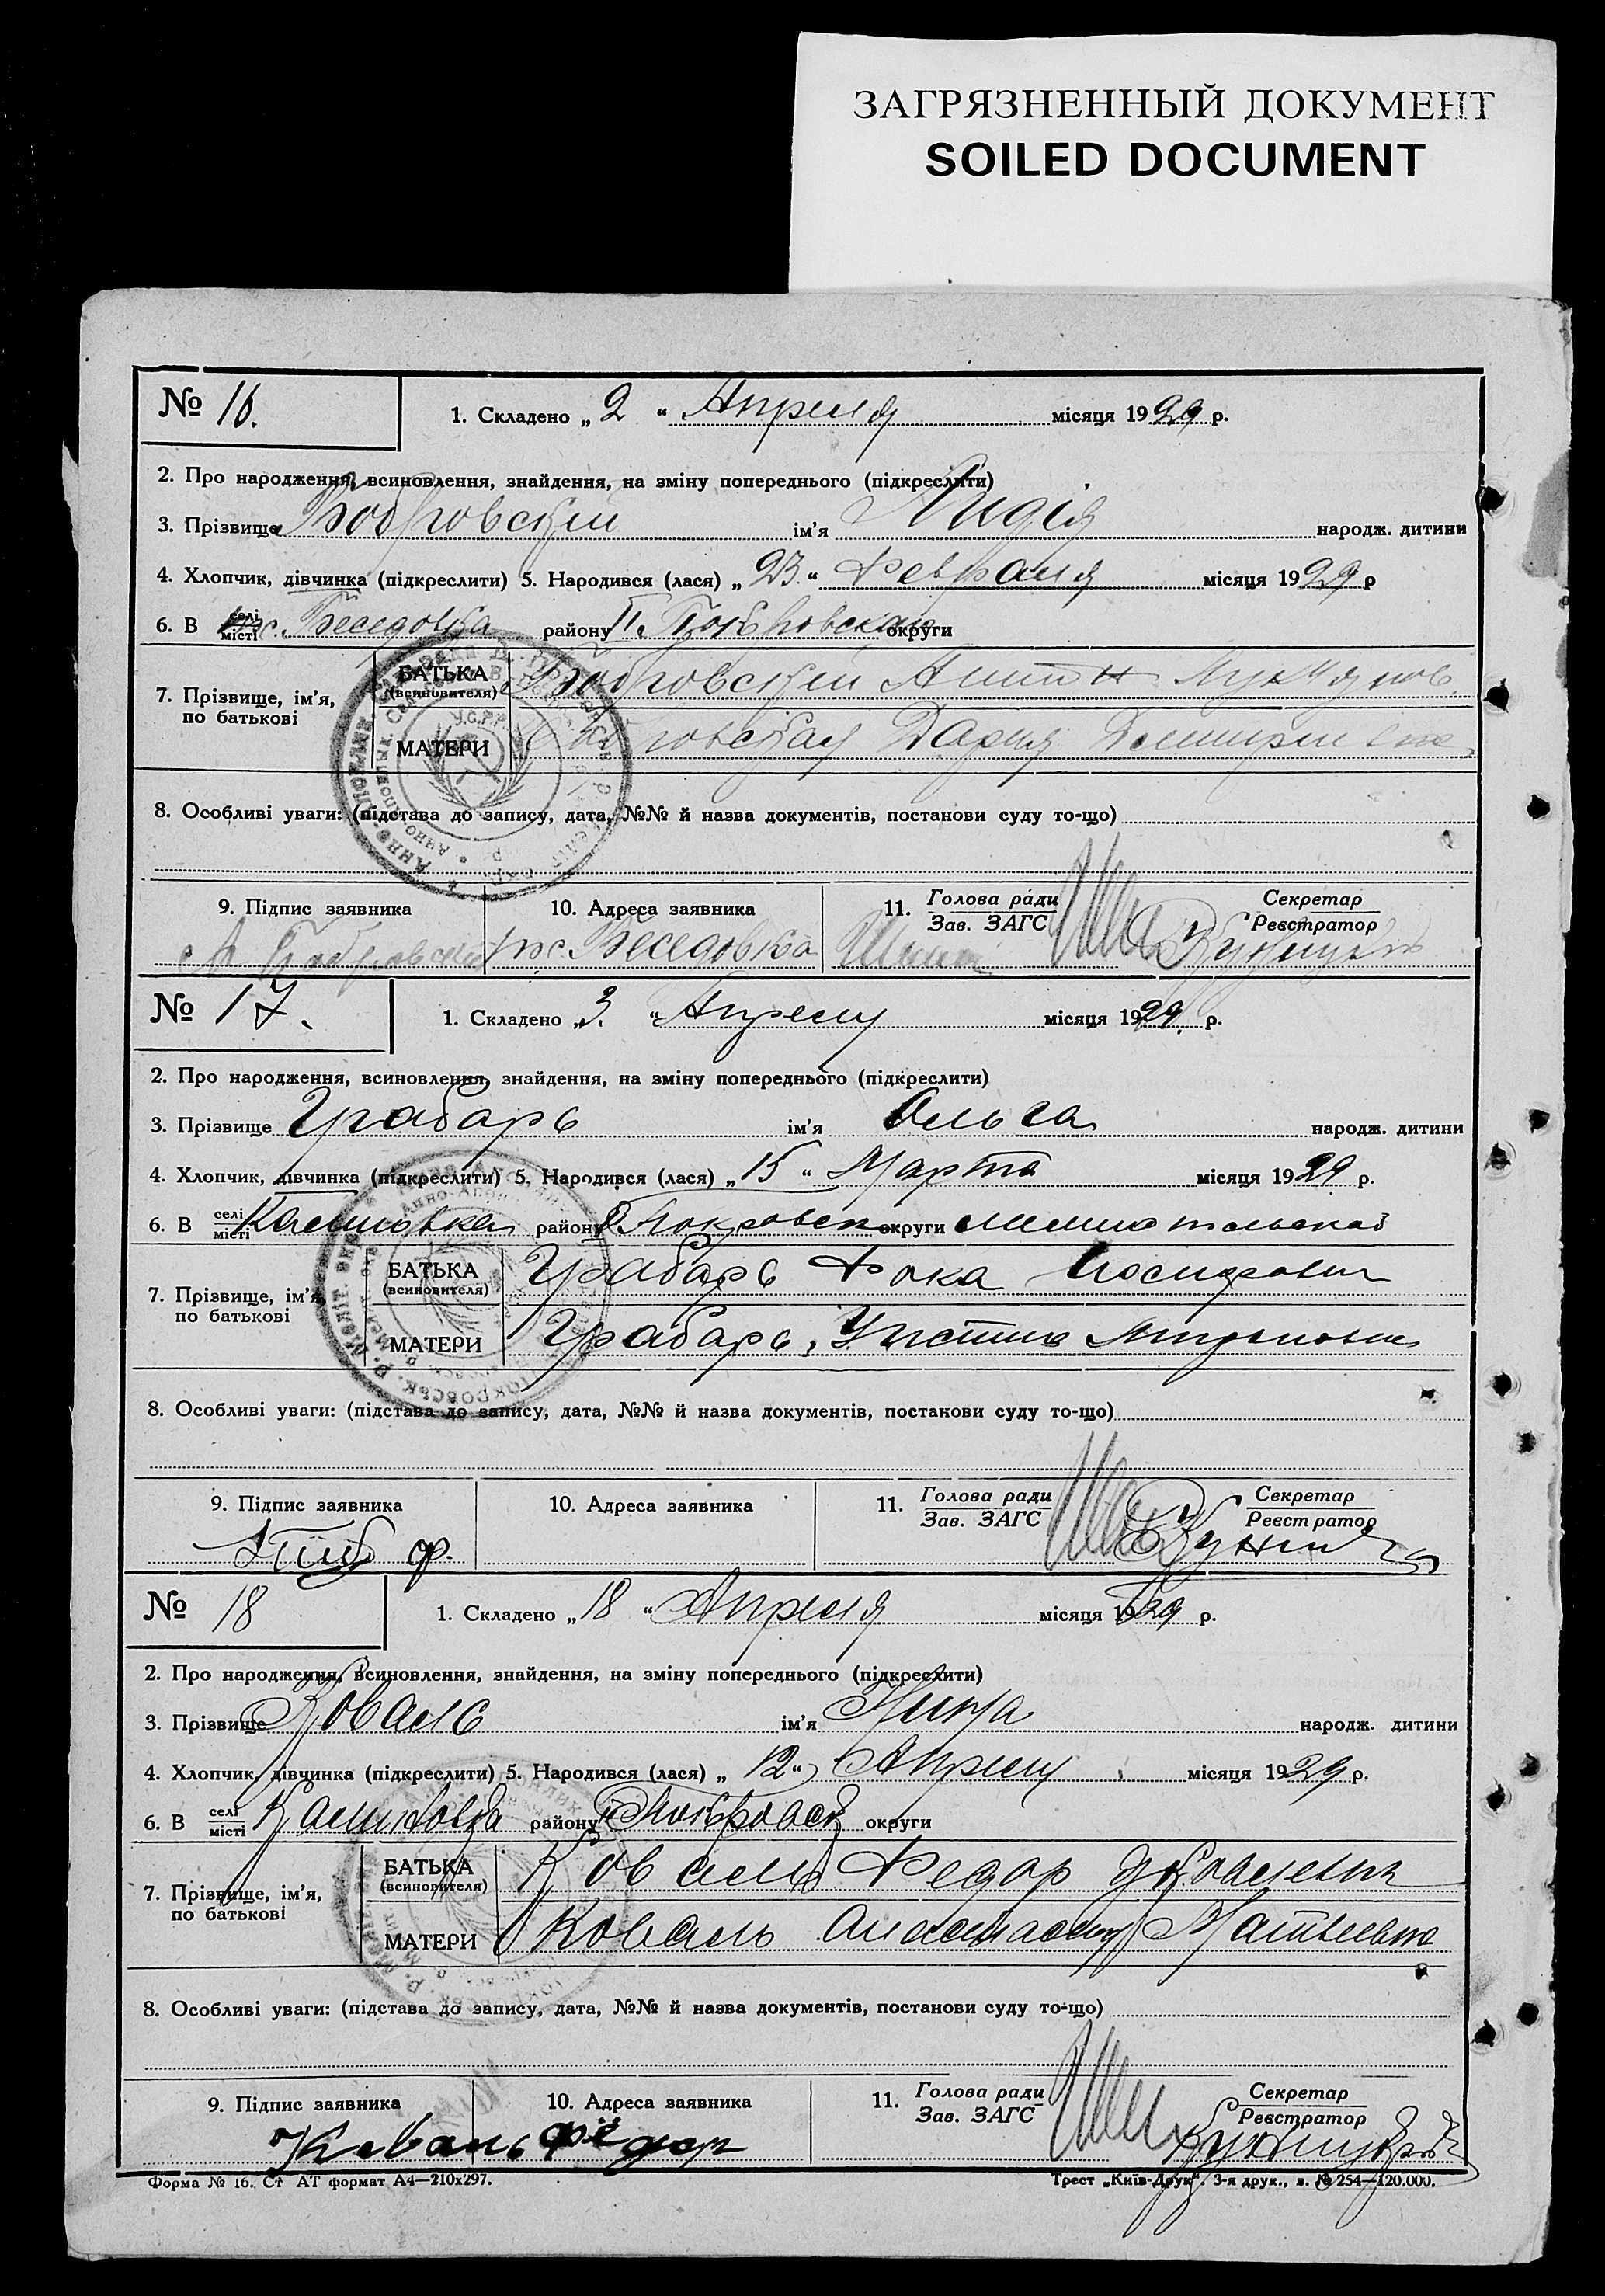 ЗАГРЯЗНЕННЫЙ ДОКУМЕНТ
SOILED DOCUMENT
№ 16. 1. Складено „ 2 “ Апреля місяця 1929 р.
2. Про народження, всиновлення, знайдення, на зміну попереднього (підкреслити)
3. Прізвище Бобровский ім'я Лидія народж. дитини
4. Хлопчик, дівчинка (підкреслити) 5. Народився (лася) „ 23 “ Февраля місяця 1929 р
6. В селі місті Беседовка району П. Покровская округи
7. Прізвище, ім'я, по батькові
БАТЬКА (всиновителя) Бобровский Антон
МАТЕРИ Дария
8. Особливі уваги: (підстава до запису, дата, №№ й назва документів, постанови суду то-що)
9. Підпис заявника 10. Адреса заявника 11. Голова ради Зав. ЗАГС Секретар Реєстратор
Бобровский Беседовка
№ 17. 1. Складено „ 3. “ Апреля місяця 1929. р.
2. Про народження, всиновлення, знайдення, на зміну попереднього (підкреслити)
3. Прізвище Грабарь ім'я Ольга народж. дитини
4. Хлопчик, дівчинка (підкреслити) 5. Народився (лася) „ 15 “ Марта місяця 1929 р.
6. В селі місті Калиновка району Покровск округи
7. Прізвище, ім'я, по батькові
БАТЬКА (всиновителя) Грабарь Фока Иосифович
МАТЕРИ Грабарь, Устина
8. Особливі уваги: (підстава до запису, дата, №№ й назва документів, постанови суду то-що)
9. Підпис заявника 10. Адреса заявника 11. Голова ради Зав. ЗАГС Секретар Реєстратор
№ 18 1. Складено „ 18 “ Апреля місяця 1929 р.
2. Про народження, всиновлення, знайдення, на зміну попереднього (підкреслити)
3. Прізвище Коваль ім'я Нина народж. дитини
4. Хлопчик, дівчинка (підкреслити) 5. Народився (лася) „ 12 “ Апреля місяця 1929 р.
6. В селі місті Калиновка району Покровск округи
7. Прізвище, ім'я, по батькові
БАТЬКА (всиновителя) Коваль Федор Яковлевич
МАТЕРИ Коваль Анастасия Матвеевна
8. Особливі уваги: (підстава до запису, дата, №№ й назва документів, постанови суду то-що)
9. Підпис заявника 10. Адреса заявника 11. Голова ради Зав. ЗАГС Секретар Реєстратор
Коваль Федор
Форма № 16. Ст АТ формат А4—210х297. Трест „Київ-Друк“. 3-я друк., з. № 254—120.000.